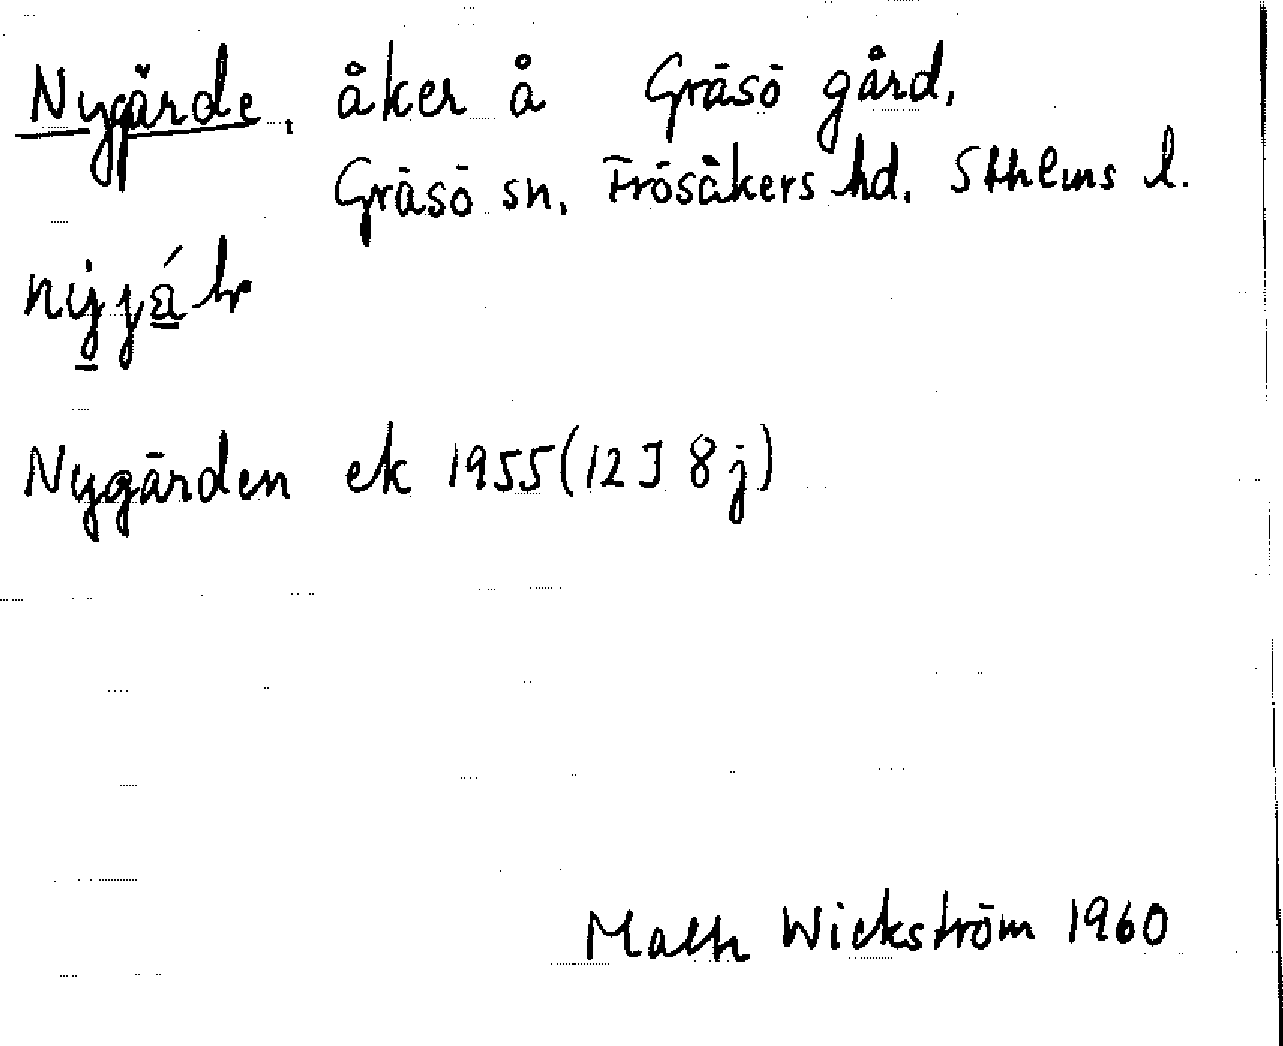 Nygärde, åker å Gräsö gård,
Gräsö sn, Frösåkers hd. Sthlms l.
Nygärden ek 1955 (12 J 8 j)
Math Wickström 1960